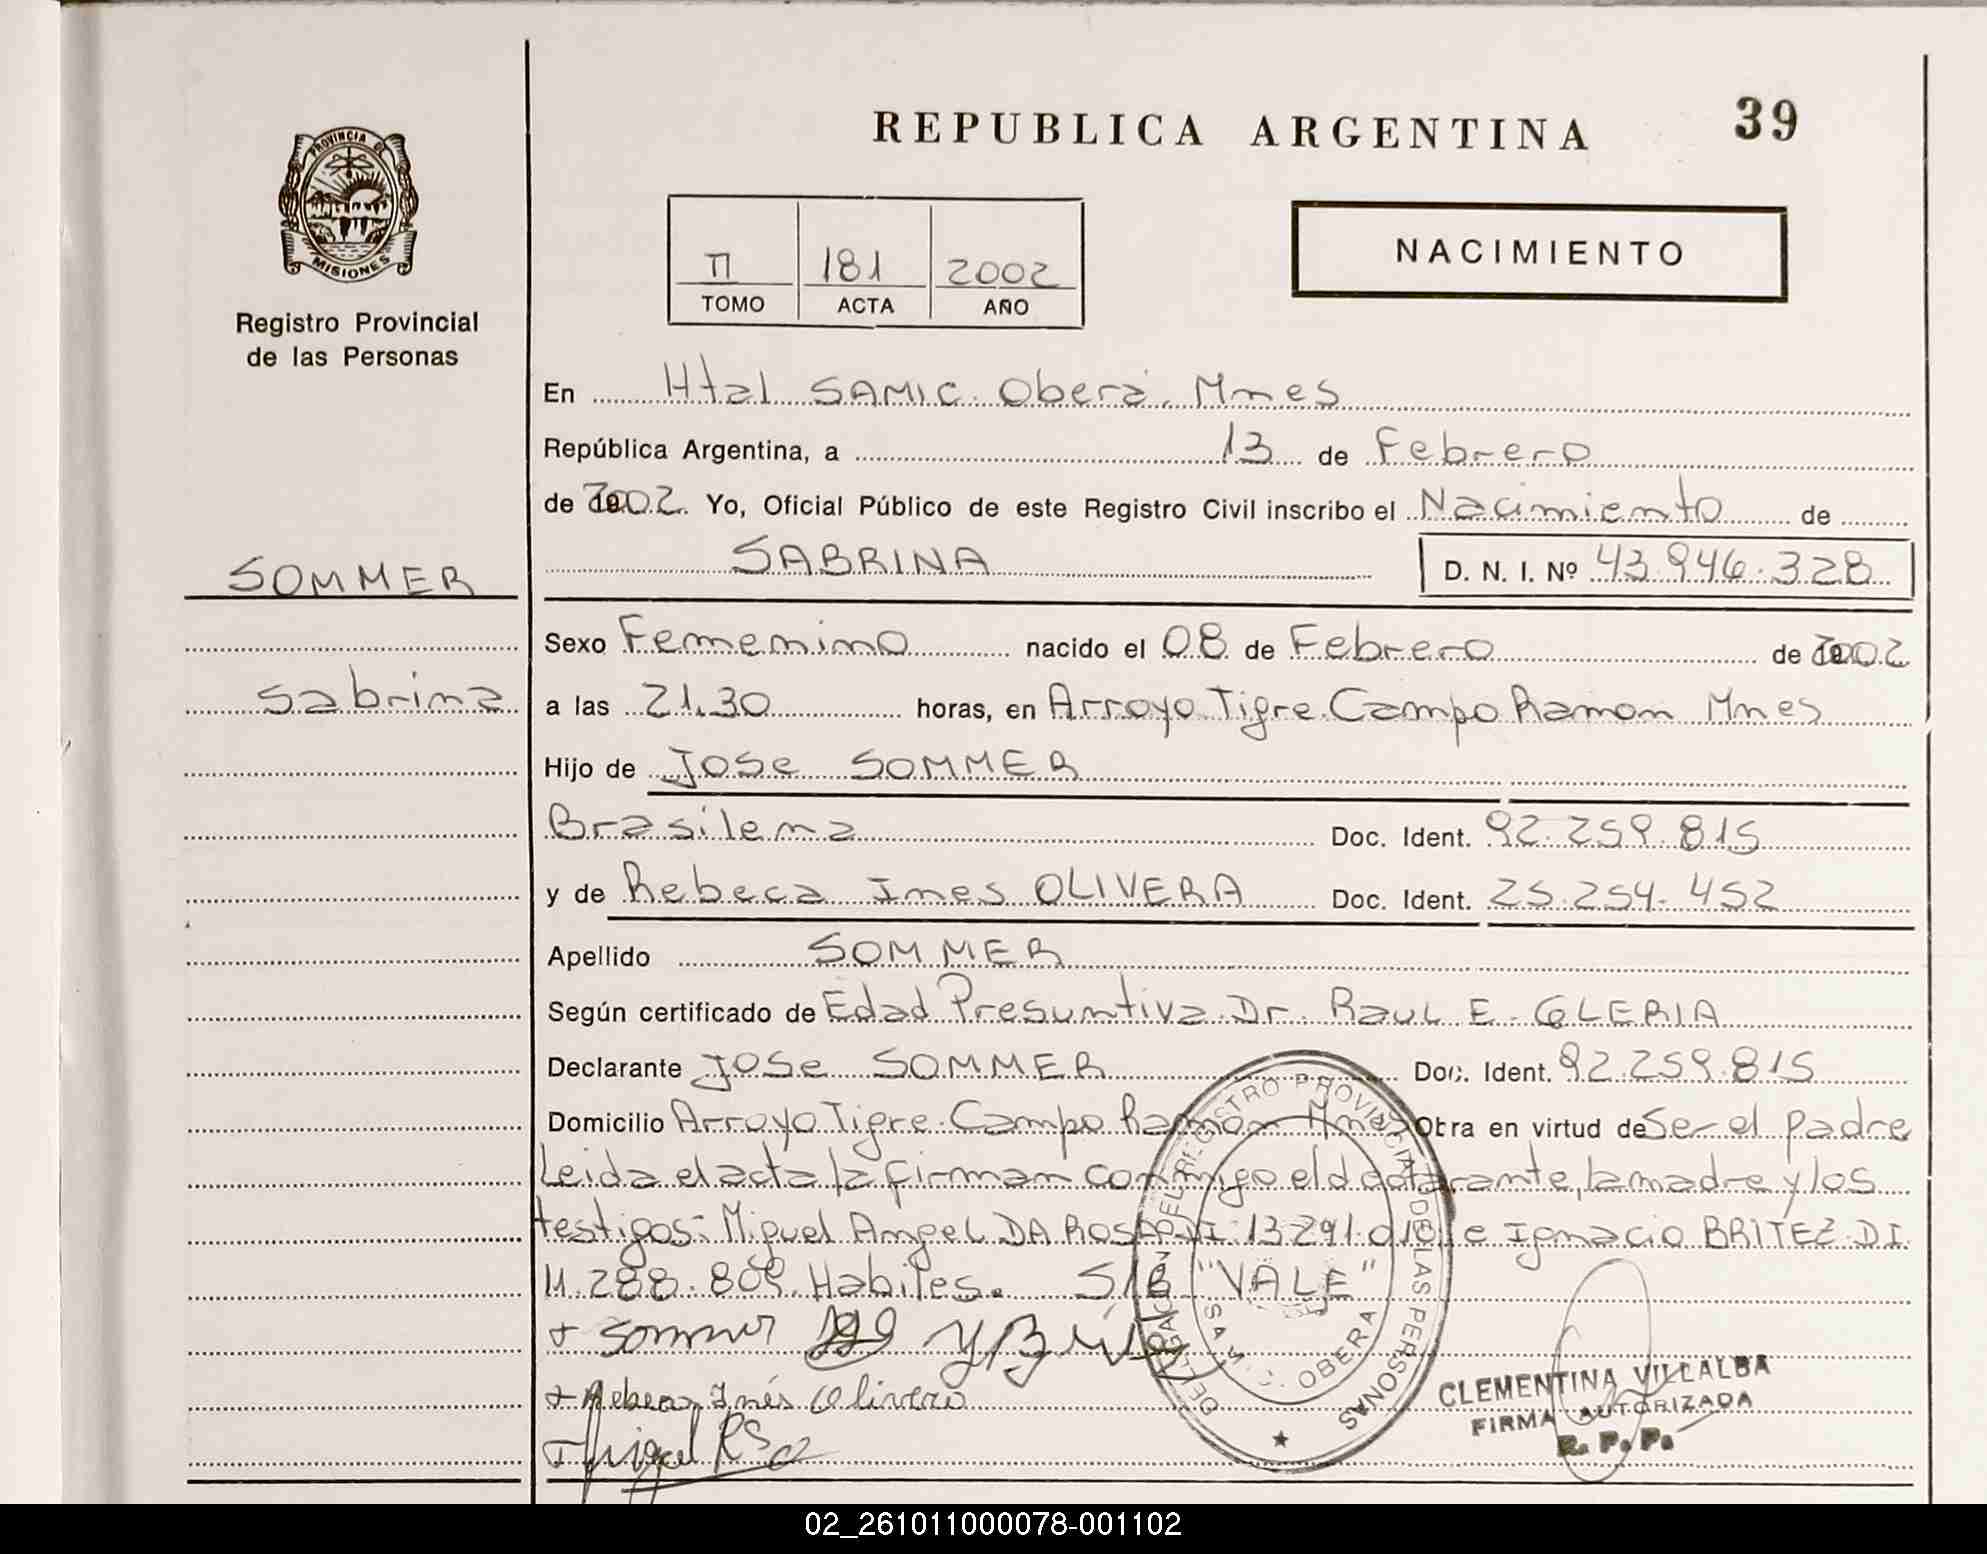 REPUBLICA ARGENTINA
39
PROVINCIA DE
MISIONES
Registro Provincial
de las Personas
II 181 2002
TOMO ACTA AÑO
NACIMIENTO
En Htal SAMIC. Oberá. Mnes
República Argentina, a 13 de Febrero
de 2002. Yo, Oficial Público de este Registro Civil inscribo el Nacimiento de
SABRINA D. N. I. Nº 43.946.328
SOMMER
Sabrina
Sexo Femenino nacido el 08 de Febrero de 2002
a las 21.30 horas, en Arroyo Tigre. Campo Ramon Mnes
Hijo de Jose SOMMER
Brasilena Doc. Ident. 92.259.815
y de Rebeca Ines OLIVERA Doc. Ident. 25.254.452
Apellido SOMMER
Según certificado de Edad Presuntiva. Dr. RAUL E. GLERIA
Declarante Jose SOMMER Doc. Ident. 92.259.815
Domicilio Arroyo Tigre. Campo Ramon Mnes Obra en virtud de Ser el padre
Leida el acta la firman conmigo el declarante, la madre y los
testigos: Miguel Angel DA ROSA DI: 13.291. e Ignacio BRITEZ DI.
M. 288.809. Habiles. S/B "VALE"
+ Sommer
+ Rebeca Inés Olivera
+ Miguel
DELEGACION DEL REGISTRO PROVINCIAL DE LAS PERSONAS
OBERA
CLEMENTINA VILLALBA
FIRMA AUTORIZADA
R. P. P.
02_261011000078-001102